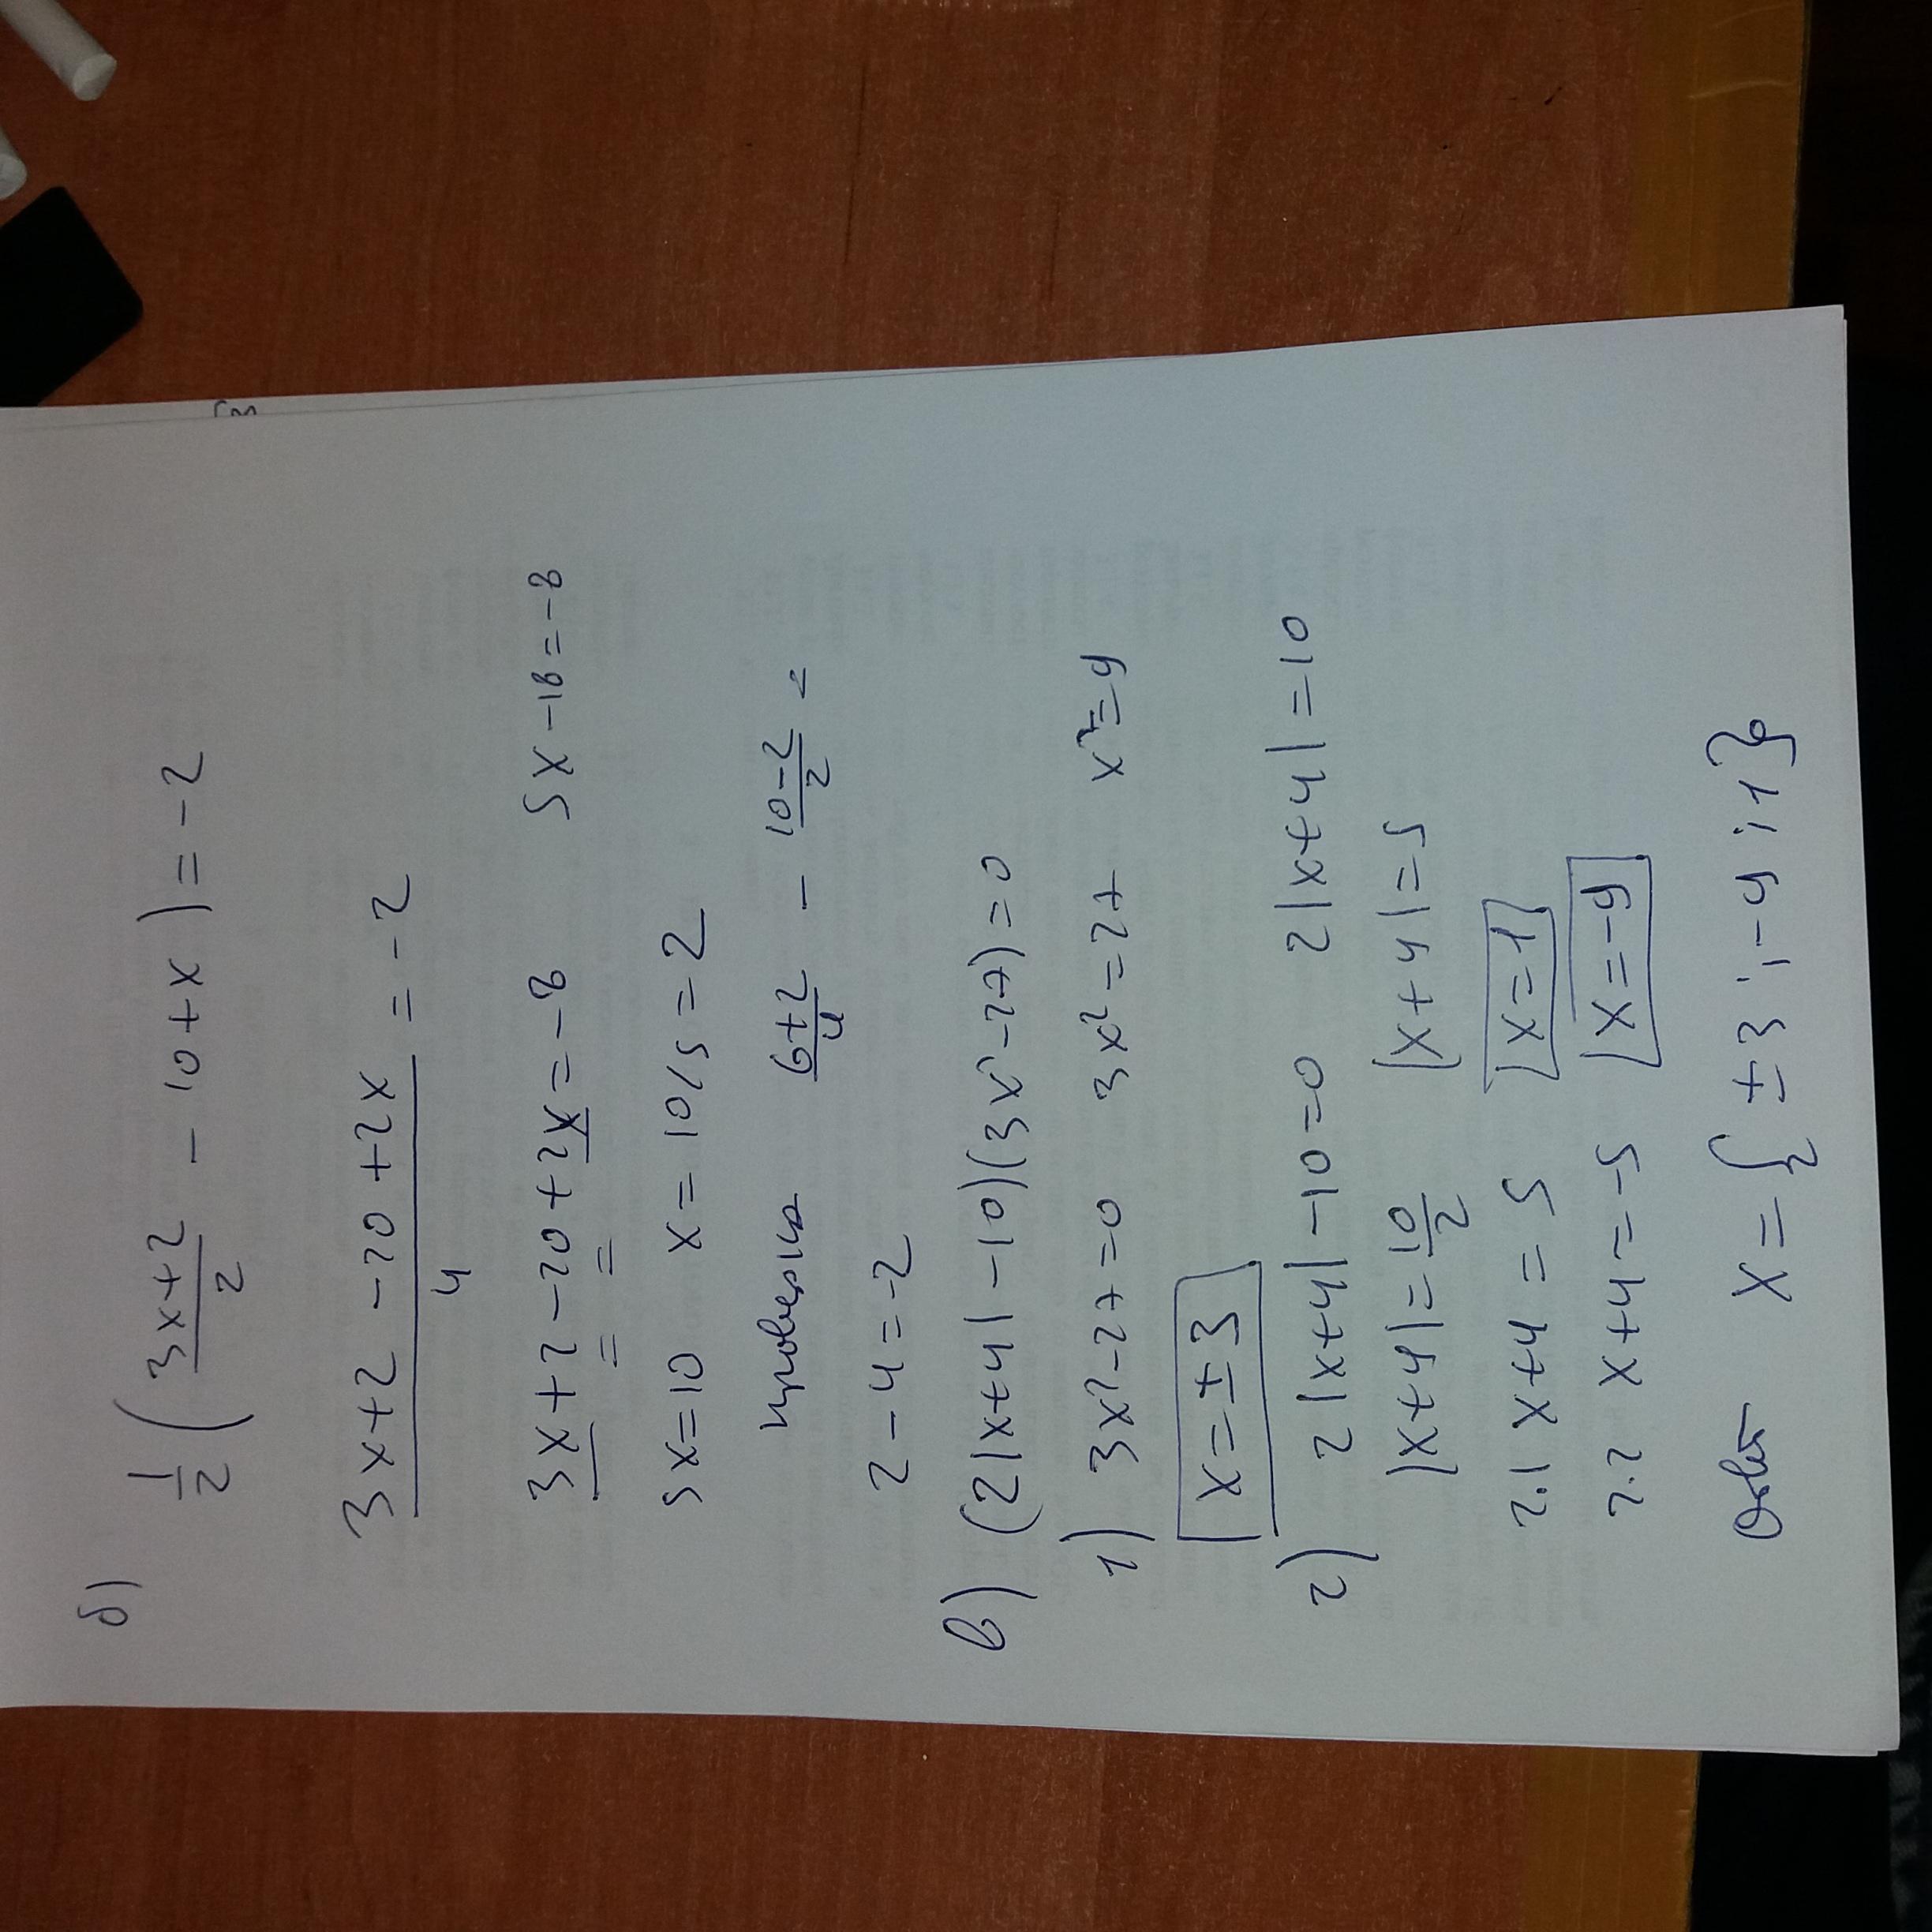 б)
1/2 (3x+2/2 - 10+x) = -2
3x+2-20+2x/4 = -2
3x+2-20+2x=-8 5x-18=-8
5x=10 x=10/5=2
проверка 6+2/4 - 10-2/2 =
2-4=-2
в) (2|x+4|-10)(3x²-27)=0
1) 3x²-27=0 3x²=27 x²=9
x=±3
2) 2|x+4|-10=0 2|x+4|=10
|x+4|=10/2 |x+4|=5
2.1 x+4=5 x=1
2.2 x+4=-5 x=-9
Ответ x={±3;-9;1}